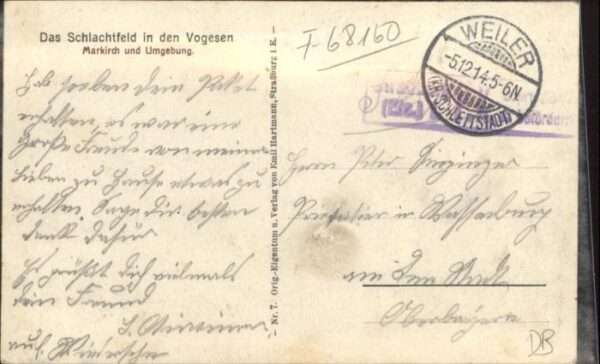 Das Schlachtfeld in den Vogesen
Markirch und Umgebung.
Hab soeben dein Paket
erhalten, es war eine
große Freude von meinen
Lieben zu Hause etwas zu
erhalten. Sage dir besten
Dank dafür
Es grüßt dich vielmals
dein Freund
auf Wiedersehn
Nr. 7. Orig.-Eigentum u. Verlag von Emil Hartmann, Straßburg i. E.
F-68160
WEILER
-5.12.14.5-6N
(KR. SCHLETTSTADT)
Herrn Peter
Privatier in Wasserburg
am Inn
Oberbayern
DB